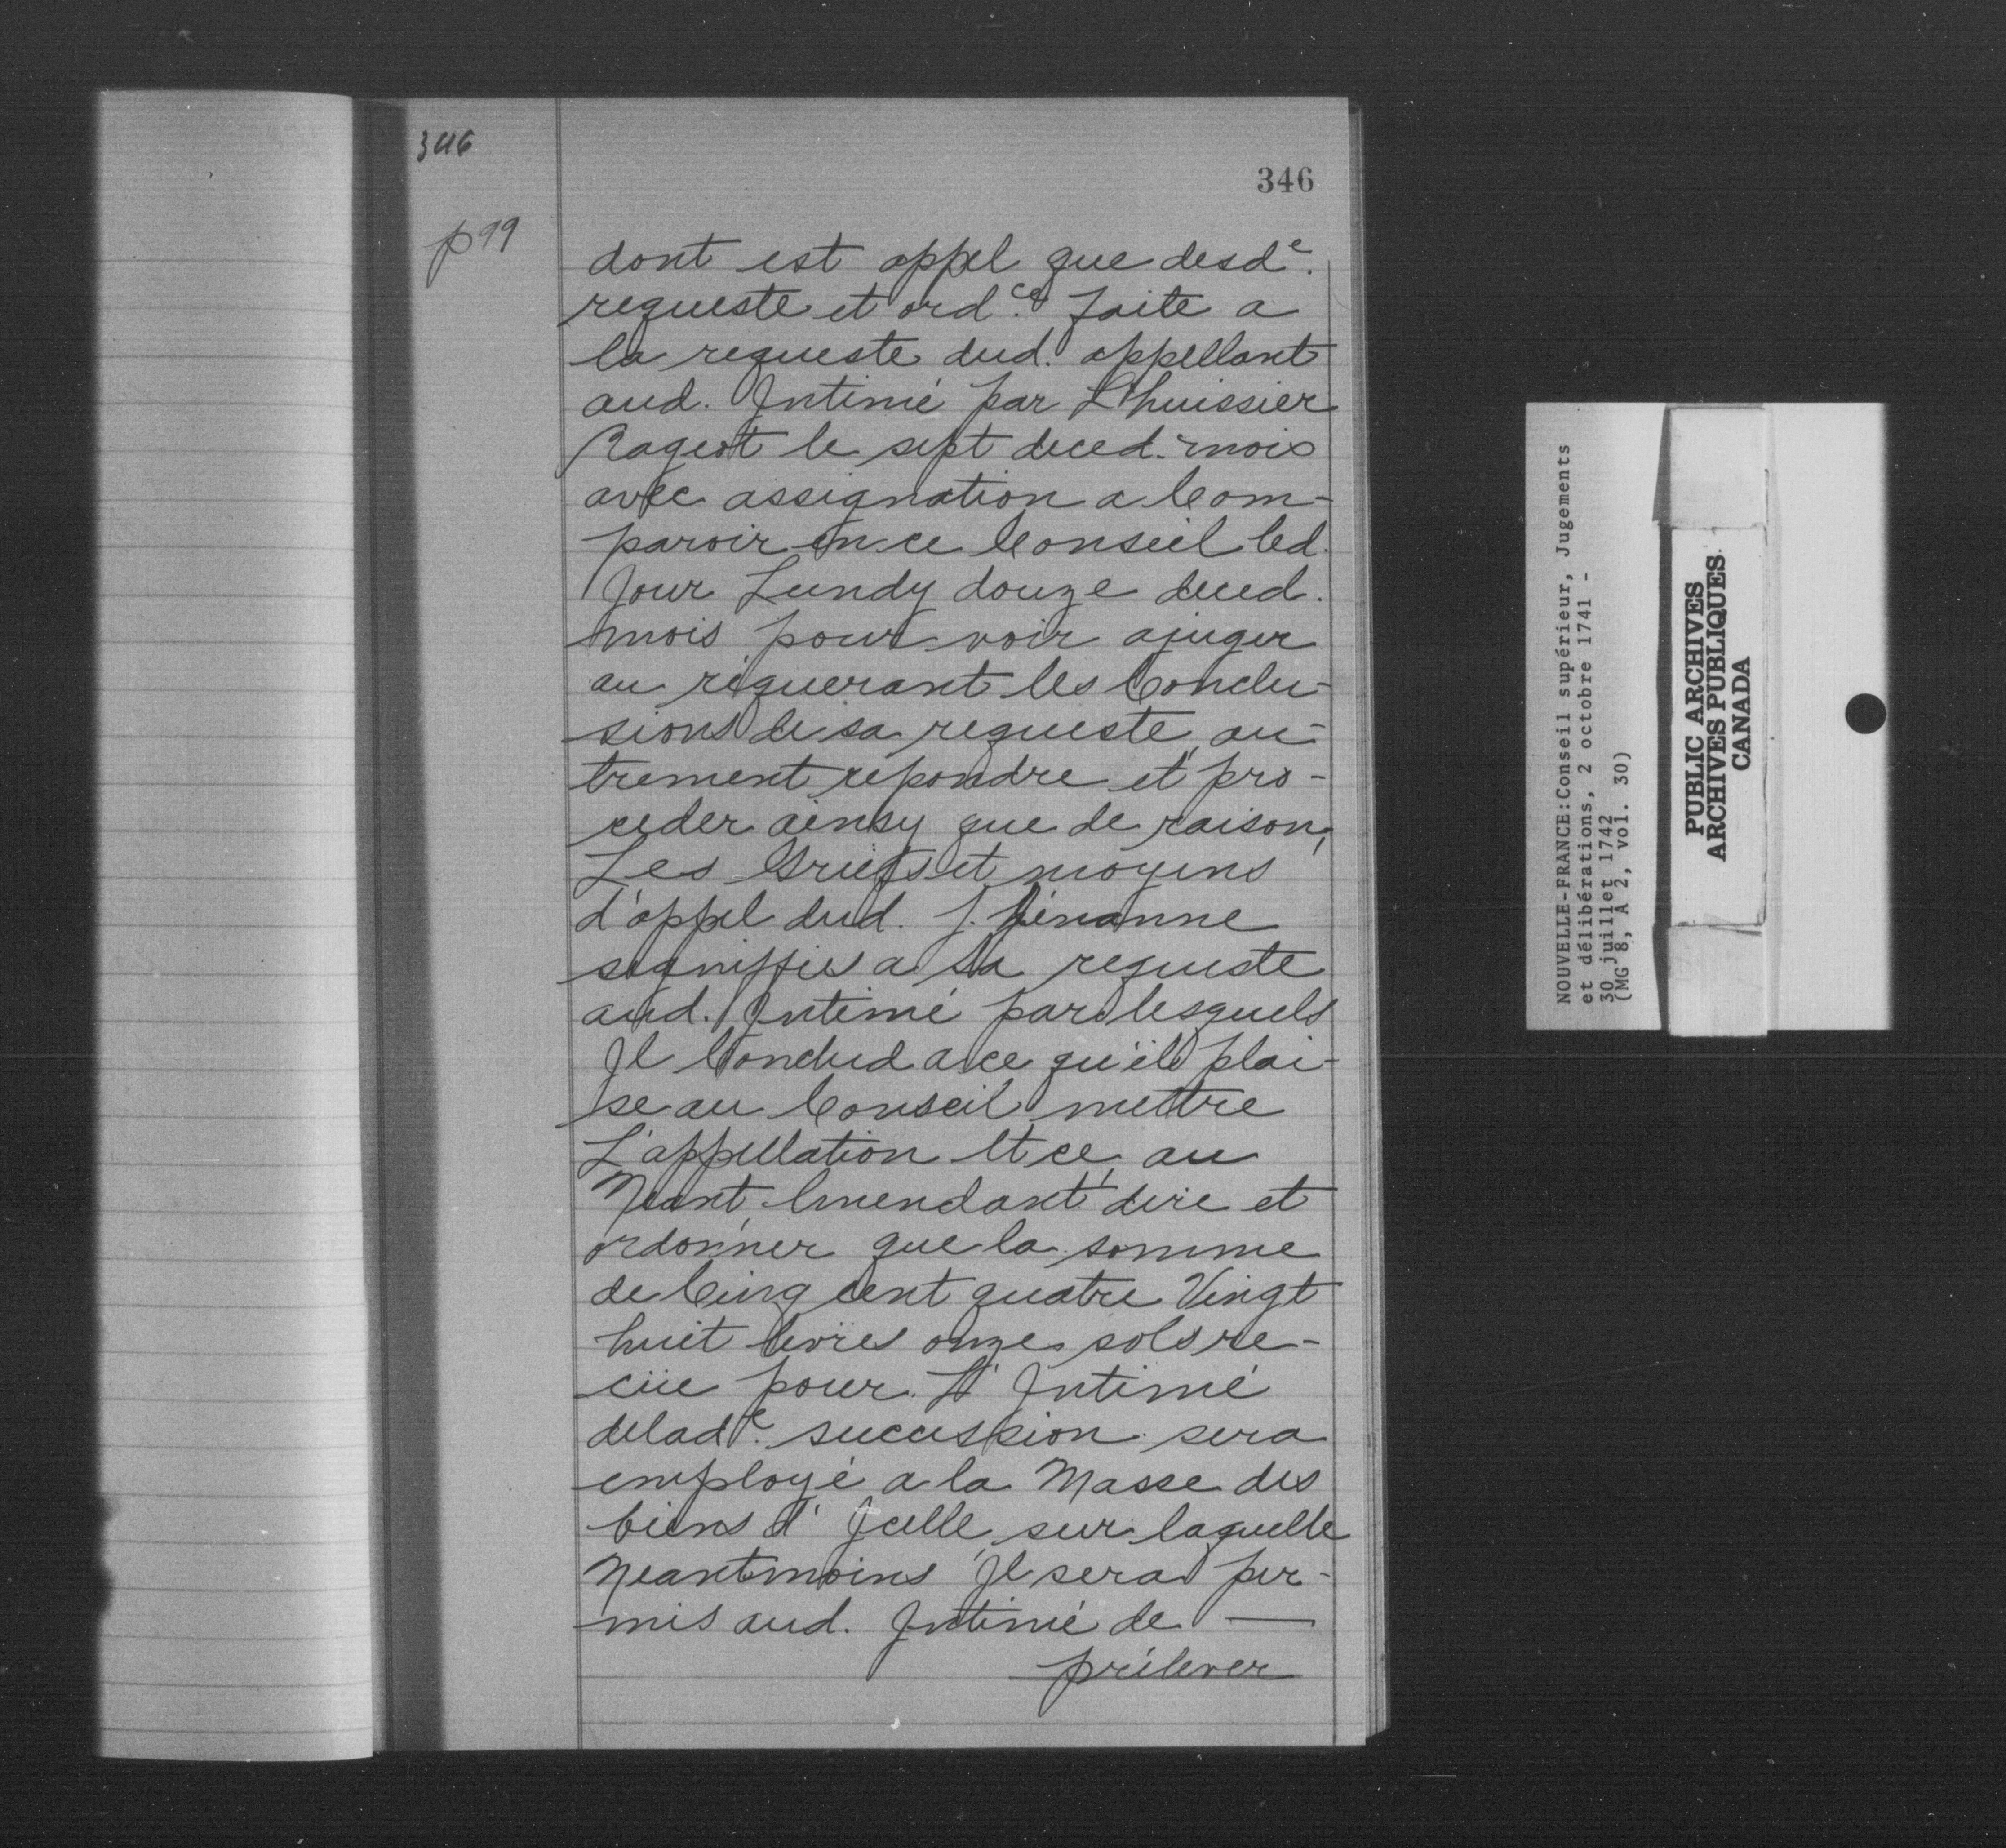 346
346
p 99
dont est appel que desde.
requeste et ord.ce faite a
la requeste dud. appellant
aud. Intimé par L'huissier
Rageot le sept deced. mois
avec assignation a Com-
paroir en ce Conseil led.
Jour Lundy douze deced.
mois pour voir ajuger
au requerant les Conclu-
sions de sa requeste, au-
trement repondre et pro-
ceder ainsy que de raison,
Les Griefs et moyens
d'appel dud. J.
signiffies a sa requeste
aud. Intimé par lesquels
Il Conclud a ce qu'il plai-
se au Conseil mettre
L'appellation et ce, au
Neant, Emendant, dire et
ordonner que la somme
de Cinq cent quatre Vingt
huit livres onze sols re-
cüe pour L'Intimé
delade. succession sera
employé a la Masse des
biens d'Icelle, sur laquelle
Neantmoins Il sera per-
mis aud. Intimé de —
prélever
NOUVELLE-FRANCE:Conseil supérieur, Jugements
et délibérations, 2 octobre 1741 -
30 juillet 1742
(MG 8, A 2, vol. 30)
PUBLIC ARCHIVES
ARCHIVES PUBLIQUES
CANADA